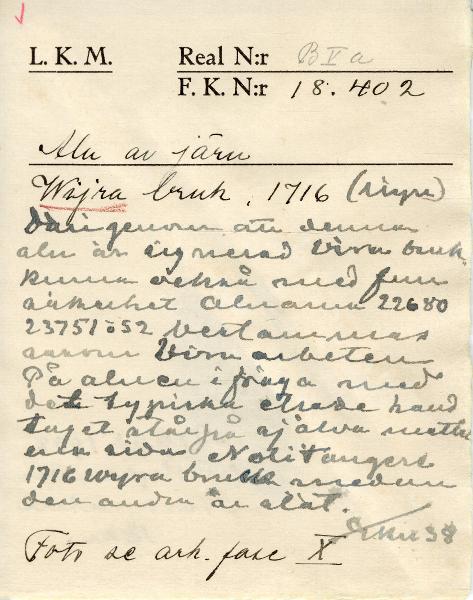 L. K. M. Real N:r B V a
F. K. N:r 18.402
Aln av järn
Wijra bruk, 1716 (sign)
Därigenom att denna
aln är signerad Wira bruk
kunna också med full
säkerhet alnarna 22680
23751 o 52 bestämmas
såsom Wira arbeten
På alnen i fråga med
det typiska eleda hand
taget står på själva mått
ena sidan Noli tangere
1716 wyra bruk medan
den andra är slät.
38
Foto se ark. fasc X